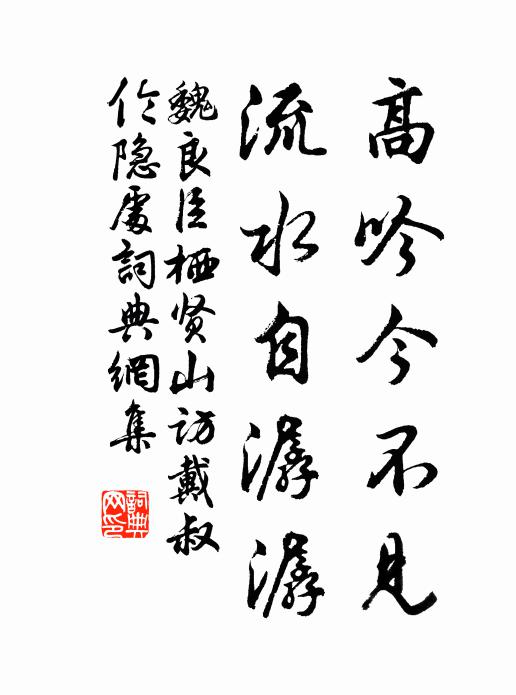 高吟今不见
流水自潺潺
魏良臣栖贤山访戴叔
伦隐处词典網集
詞典
网印